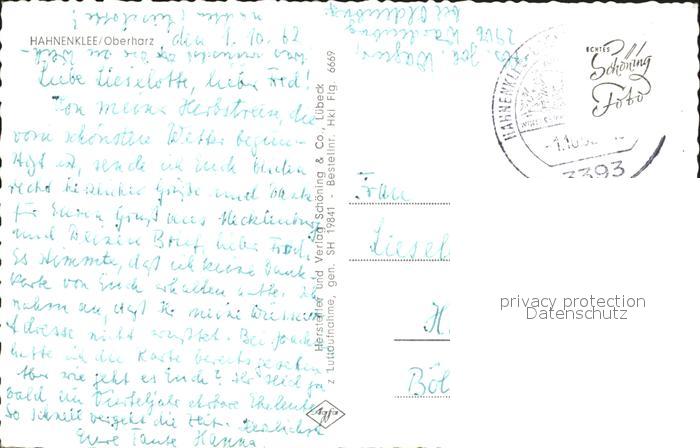 HAHNENKLEE/Oberharz
den 1. 10. 62
Liebe Lieselotte, lieber Fred!
Von meiner Herbstreise, die
vom schönsten Wetter begün-
stigt ist, sende ich Euch beiden
recht herzliche Grüße und danke
für Euren Gruß aus Mecklenburg
und Deinen Brief, lieber Fred.
Es stimmte, daß ich keine Dank-
karte von Euch erhalten hatte. Ich
nahm an, daß Ihr meine
Adresse nicht wußtet. Bei
hatte ich die Karte bereits gesehen.
Aber wie geht es Euch? Ihr seid ja
bald ein Vierteljahr Eheleute
So schnell vergeht die Zeit. Herzlichst
Eure Tante Hanna.
Hersteller und Verlag Schöning & Co., Lübeck
z Luftaufnahme, gen. SH 19841 - Bestellnr. Hkl Flg 6669
Agfa
2906 Wardenburg
bei Oldenburg
ECHTES
Schöning
Foto
HAHNENKLEE
3393
Frau
Liesel
H
Böl
privacy protection
Datenschutz